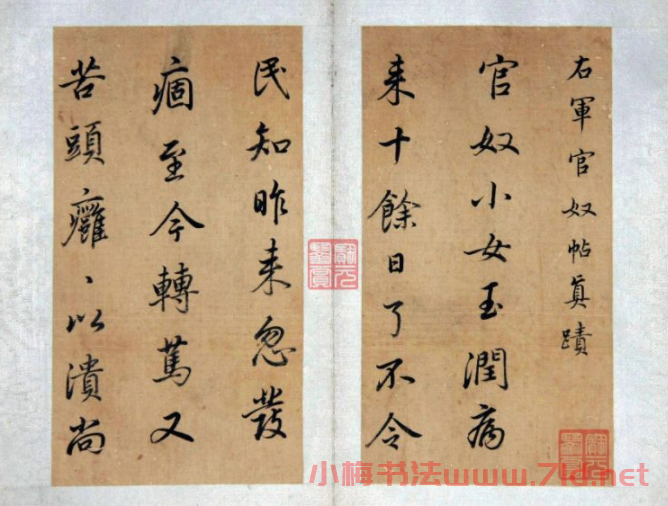 右軍官奴帖真蹟
官奴小女玉潤病
来十餘日了不令
民知昨来忽發
痼至今轉篤又
苦頭癰、以潰尚
小梅书法www.7ld.net